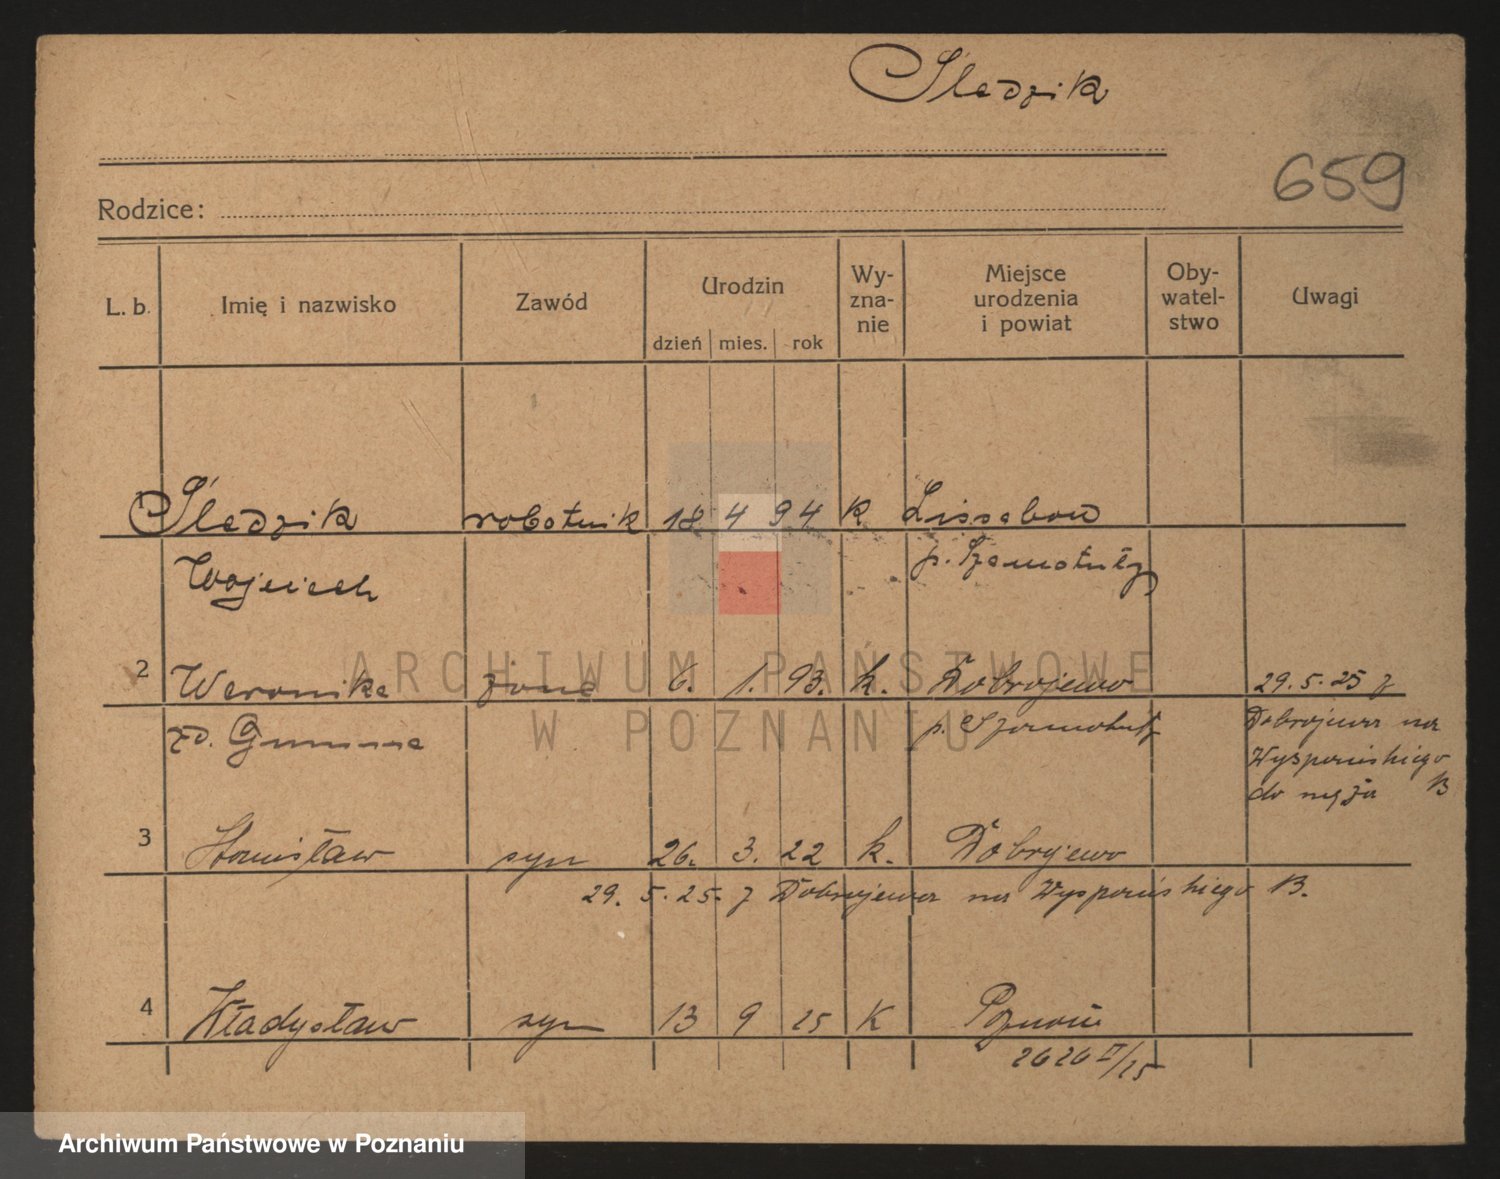 Śledzik
659
Rodzice:
L. b. Imię i nazwisko Zawód Urodzin dzień mies. rok Wy-zna-nie Miejsce urodzenia i powiat Oby-watel-stwo Uwagi
Śledzik robotnik 18 4 94 K
Wojciech p. Szamotuły
2 Weronika żona 6. 1. 93. k. Dobrojewo 29.5.25 z
p. Szamotuły Dobrojewa na
Wyspiańskiego
do męża B
3 Stanisław syn 26. 3. 22 k. Dobrojewo
29. 5. 25. z Dobrojewa na Wyspiańskiego B.
4 Władysław syn 13 9 25 K Poznań
ARCHIWUM PAŃSTWOWE
W POZNANIU
Archiwum Państwowe w Poznaniu